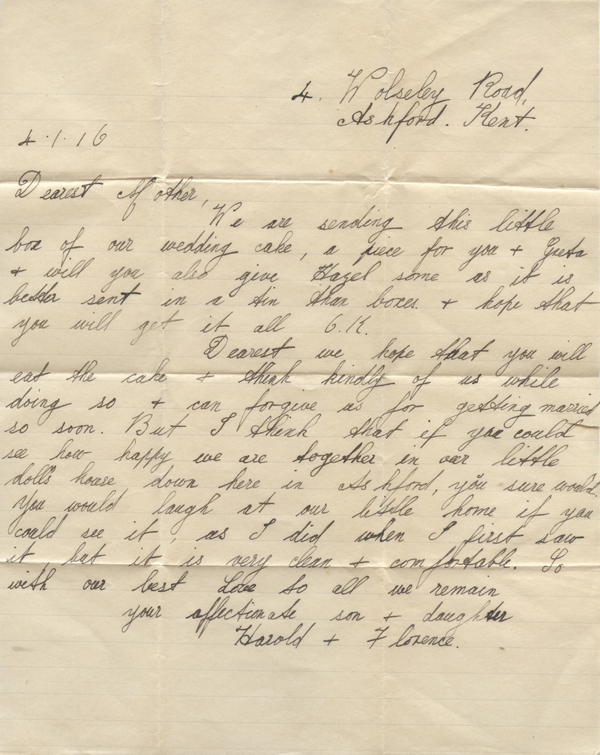 4. Wolseley Road,
Ashford. Kent.
4.1.16
Dearest Mother,
We are sending this little
box of our wedding cake, a piece for you + Greta
+ will you also give Hazel some as it is
better sent in a tin than boxes. + hope that
you will get it all O.K.
Dearest we hope that you will
eat the cake + think kindly of us while
doing so + can forgive us for getting married
so soon. But I think that if you could
see how happy we are together in our little
dolls house down here in Ashford, you sure would.
You would laugh at our little home if you
could see it, as I did when I first saw
it but it is very clean + comfortable. So
with our best Love to all we remain
your affectionate son + daughter
Harold + Florence.